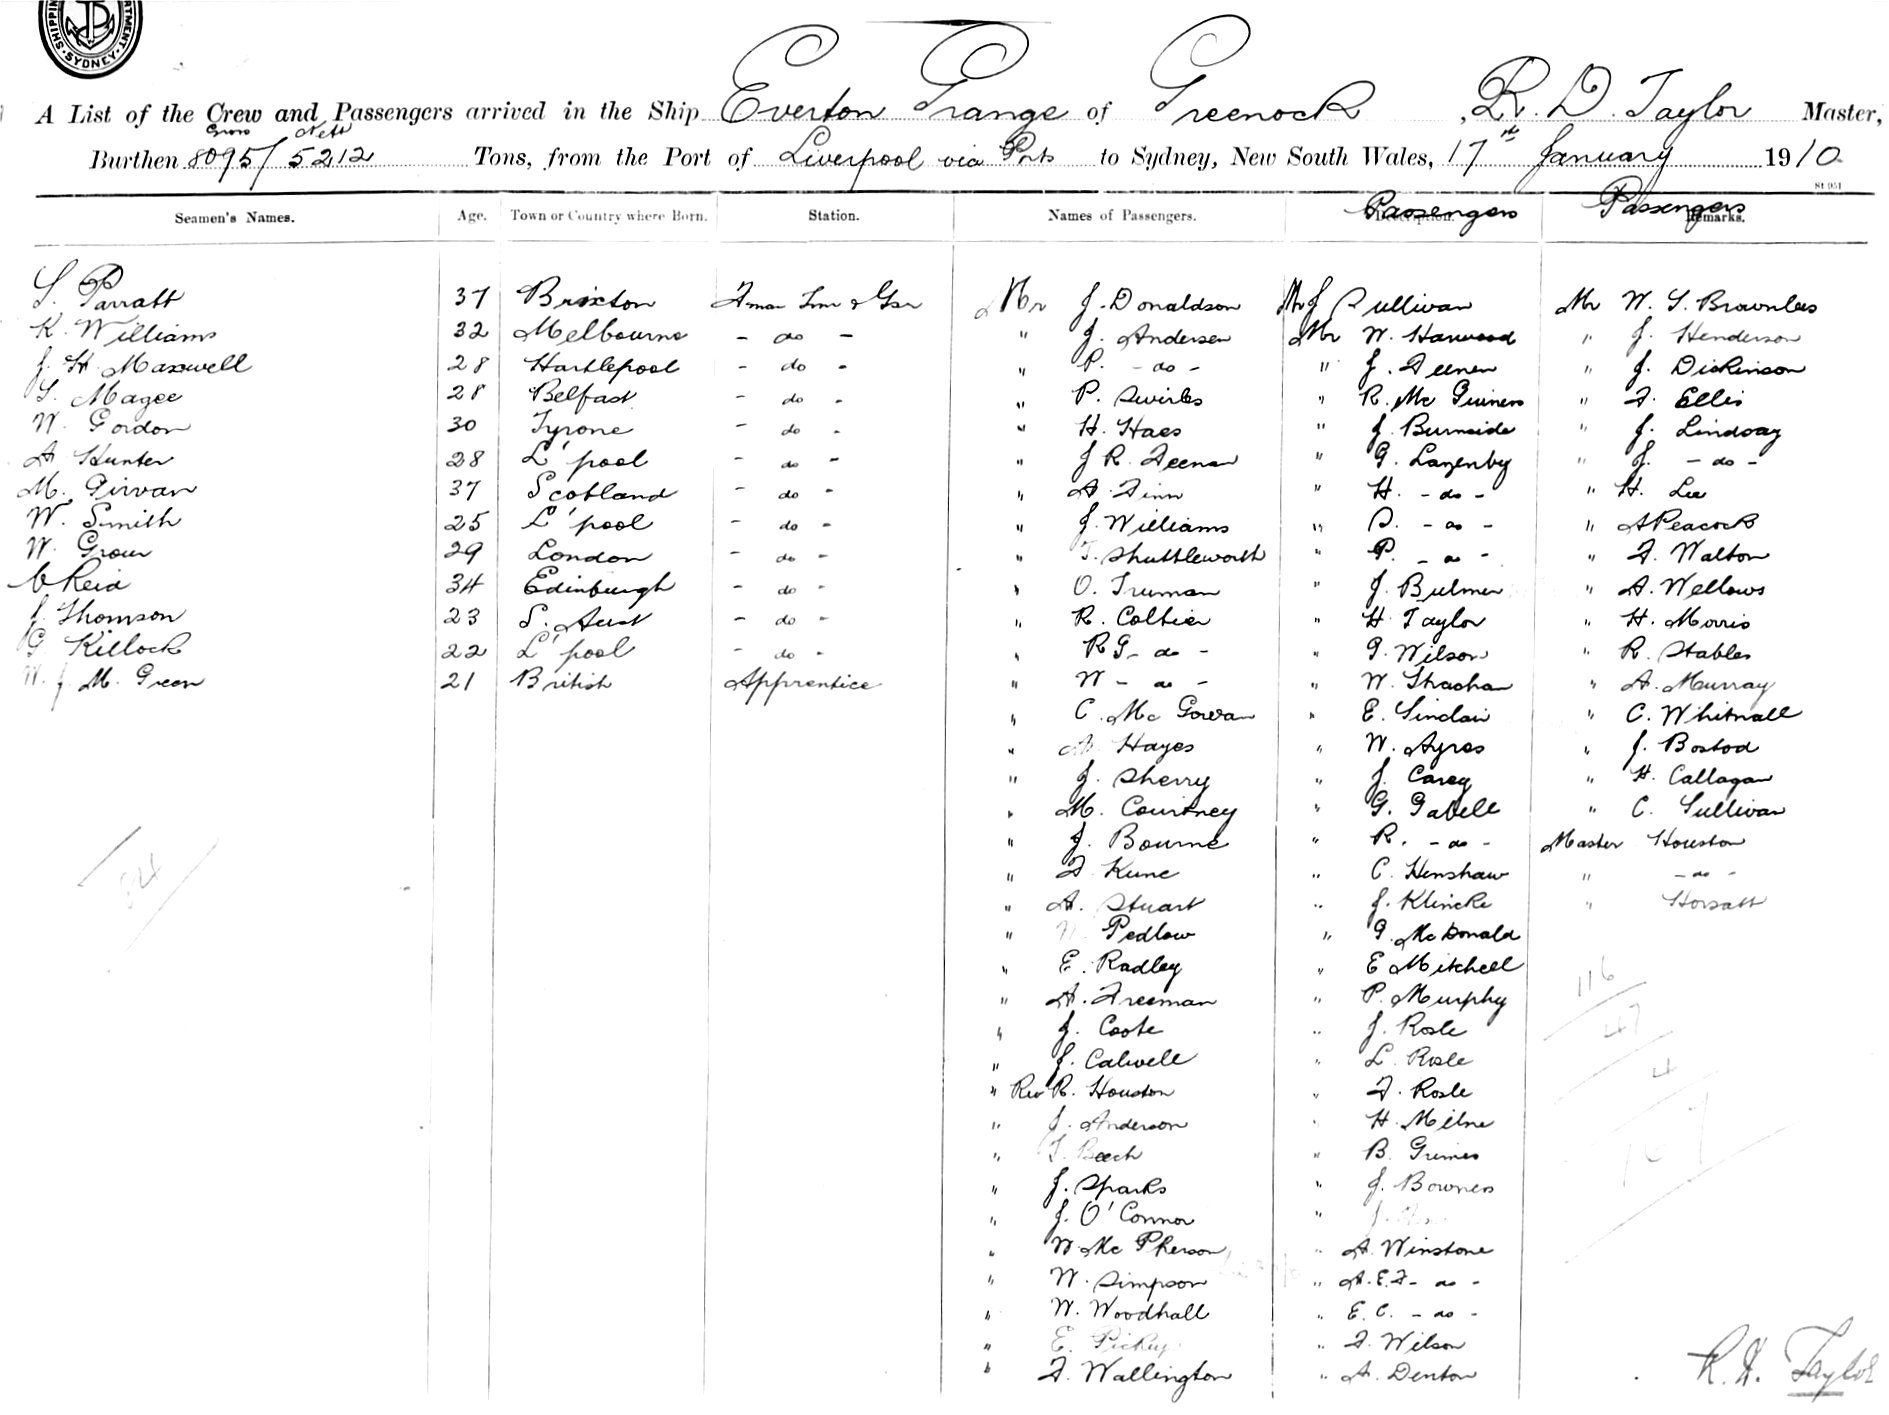 SHIPPING DEPARTMENT SYDNEY
A List of the Crew and Passengers arrived in the Ship Everton Grange of Greenock, R. D. Taylor Master,
Gross Nett
Burthen 8095/5212 Tons, from the Port of Liverpool via Ports to Sydney, New South Wales, 17th January 1910
St 951
Seamen's Names. Age. Town or Country where Born. Station. Names of Passengers. Passengers Passengers Remarks.
S. Parratt 37 Brixton Mr J. Donaldson Mr J Sullivan Mr W. S. Brownlees
K. Williams 32 Melbourne - do - " J. Andersen Mr W. Harwood " J. Henderson
J. H. Maxwell 28 Hartlepool - do - " P. - do - " J. Feenen " J. Dickinson
S. Magee 28 Belfast - do - " P. Swirles " R. Mc Guiness " F. Ellis
W. Gordon 30 Tyrone - do - " H. Haes " J. Burnside " J. Lindsay
A Hunter 28 L'pool - do - " J R. Feenan " G. Lazenby " J. - do -
M. Girvan 37 Scotland - do - " A. Finn " H. - do - " H. Lee
W. Smith 25 L'pool - do - " J. Williams " S. - do - " A Peacock
W. 29 London - do - " T. Shuttleworth " P. - do - " F. Walton
C Reid 34 Edinburgh - do - " O. Truman " J. Bulmer " A. Wellows
J. Thomson 23 S. Aust - do - " R. Collier " H Taylor " H. Morris
G. Killock 22 L'pool - do - " R G - do - " G. Wilson " R. Stables
W. J. M. Green 21 British Apprentice " W - do - " W. Strachan " A. Murray
" C. Mc Gowan " E. Sinclair " C. Whitnall
" A. Hayes " W. Ayres " J. Bostod
" J. Sherry " J. Carey " H. Callagan
" M. Courtney " G. Gabell " C. Sullivan
" J. Bourne " R. - do - Master Houston
" F. Kune " C. Henshaw " - do -
" A. Stuart " J. Klincke " Horsatt
" W. Pedlow " G. McDonald
" E. Radley " E Mitchell
" A. Freeman " P. Murphy
" J. Coote " J. Rosle
" J. Calwell " L. Rosle
" Rev R. Houston " F. Rosle
" J. Anderson " H. Milne
" T. Beech " B. Grimes
" J. Sparks " J. Bowness
" J. O'Connor " J.
" W. Mc Pherson " A. Winstone
" W. Simpson " A. E. F - do -
" W. Woodhall " E. C. - do -
" E. Pickup " F. Wilson
" F. Wallington " A. Denton
84
116
47
4
167
R. D. Taylor